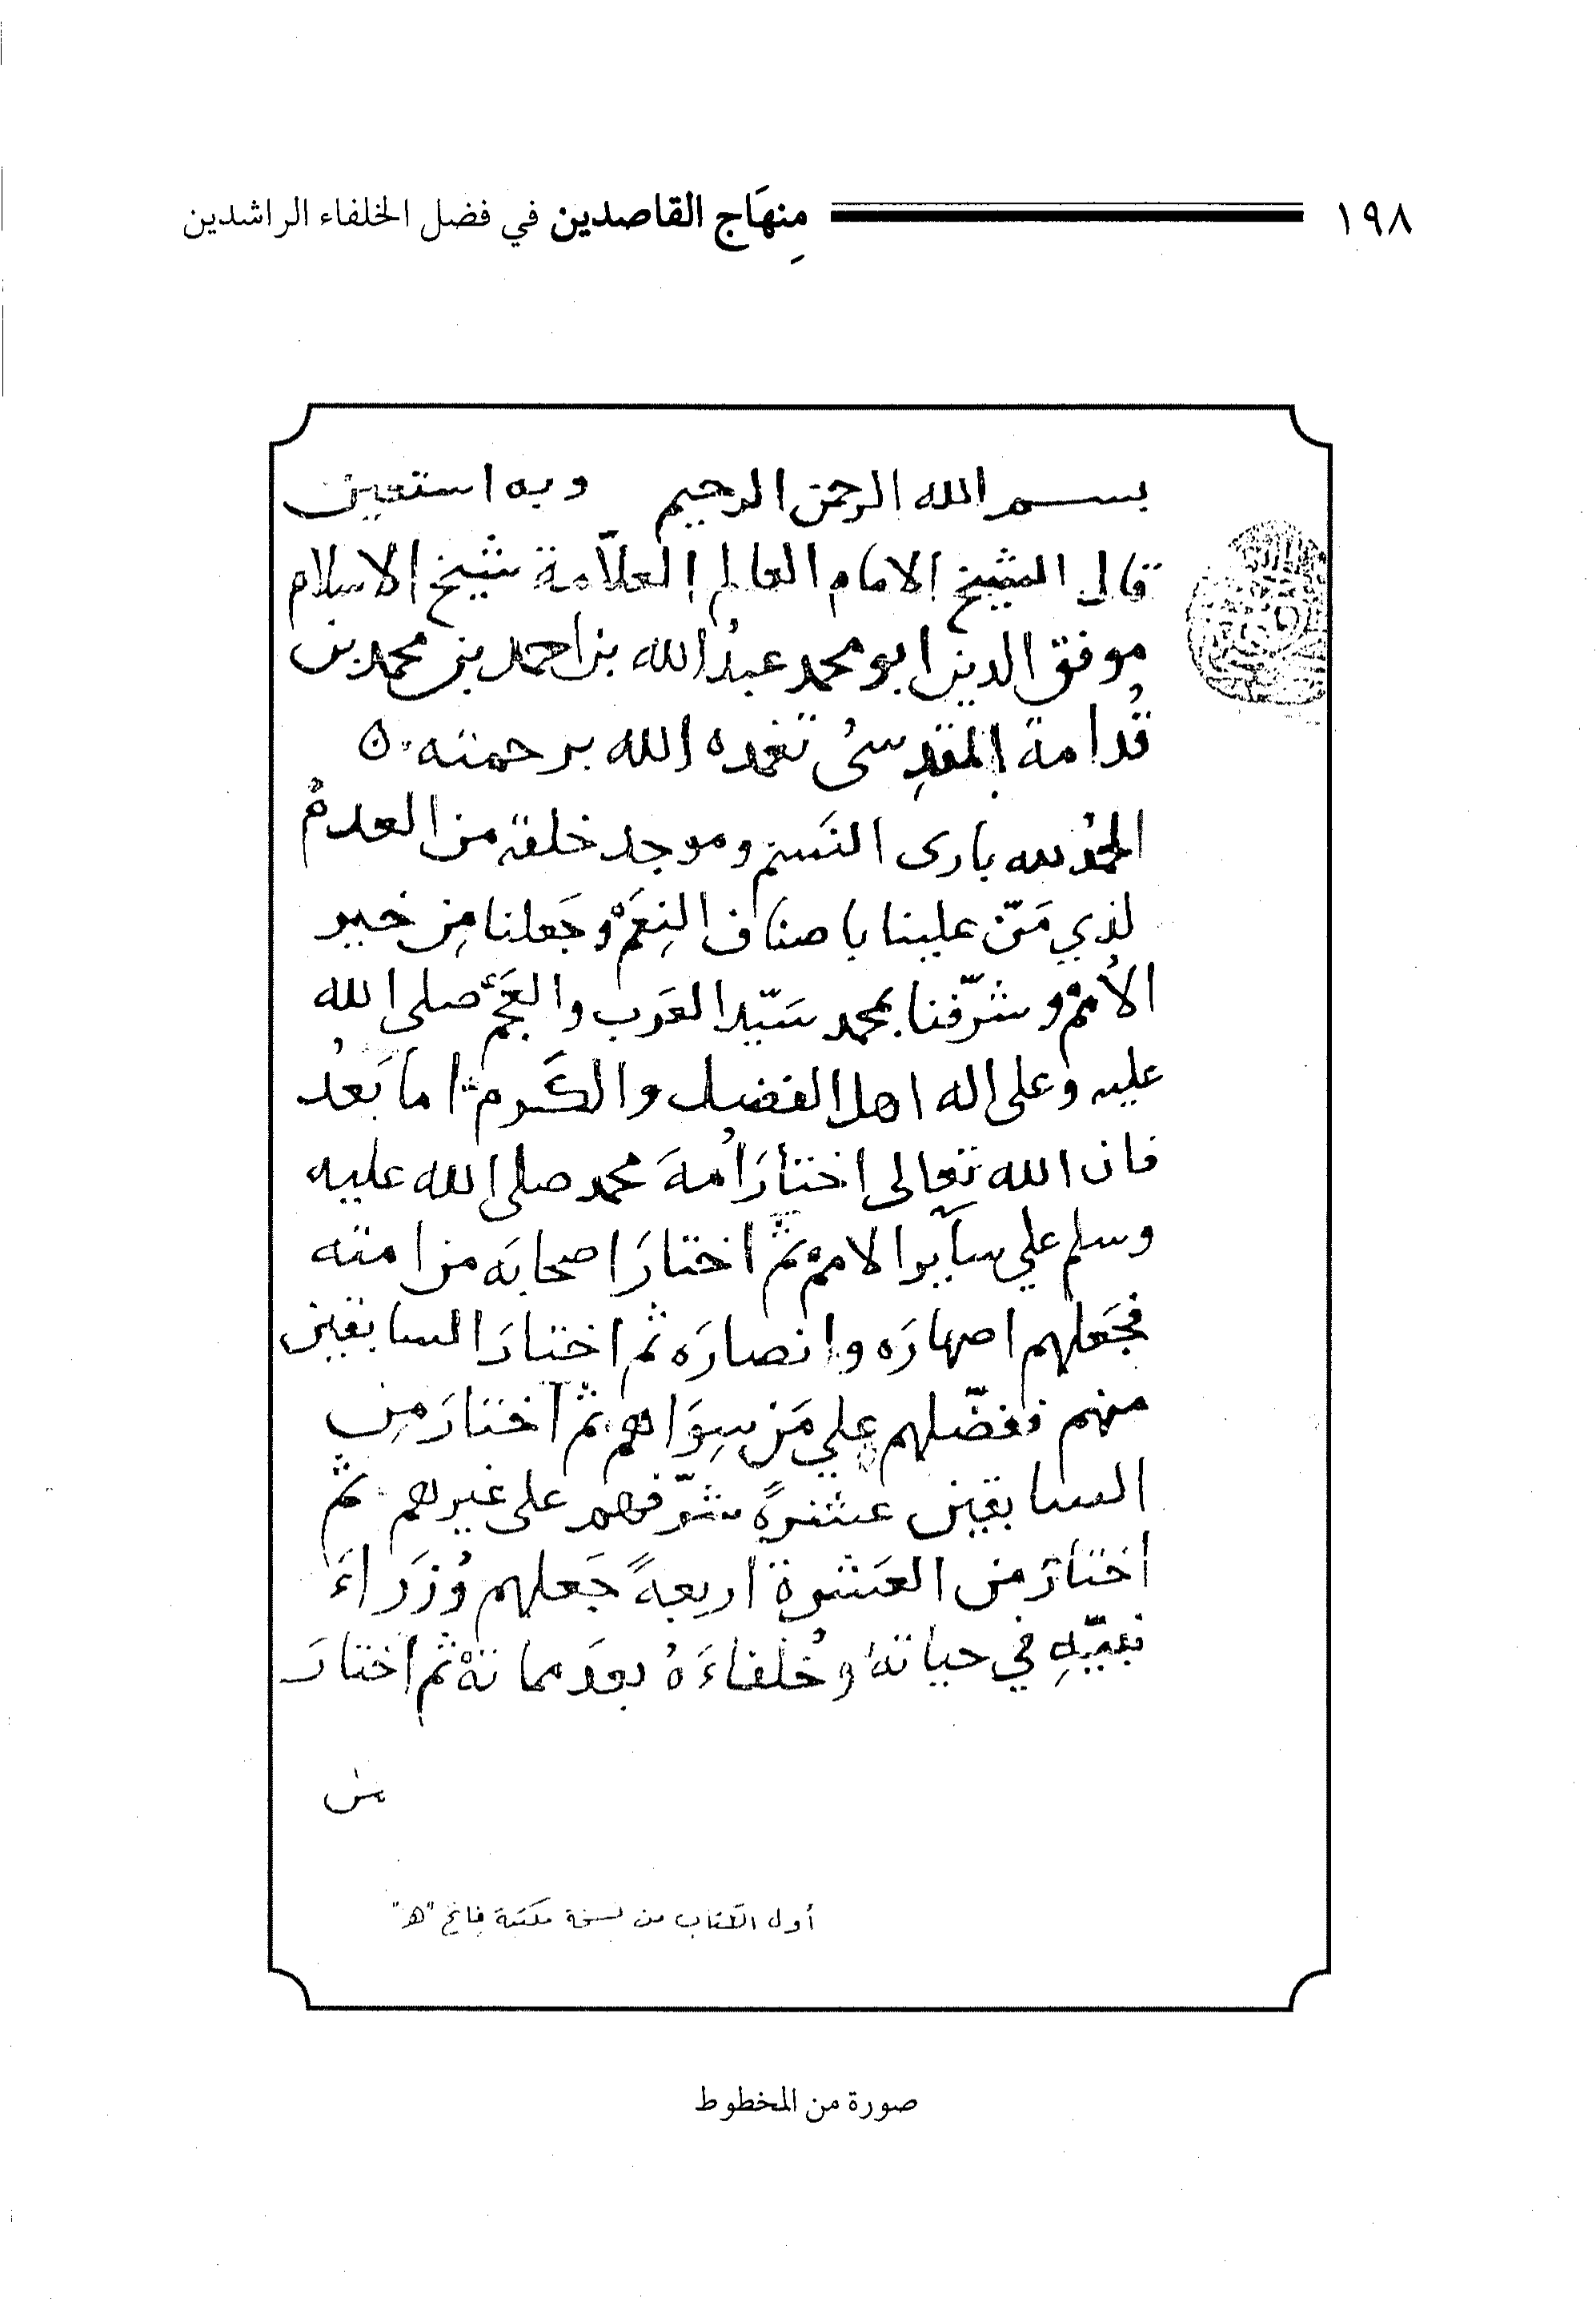 ١٩٨ مِنهَاج القاصدين في فضل الخلفاء الراشدين
بسم الله الرحمن الرحيم وبه استعين
قال الشيخ الامام العالم العلّامة شيخ الاسلام
موفق الدين ابو محمد عبدُ الله بن احمد بن محمد بن
قُدامة المقدِسىُ تغمده الله برحمته
الحمدُ لله بارى النَسَم وموجد خلقه من العدمْ
لذي مَنّ علينا باصناف النِعَمْ وجَعلنا مِن خير
الأُممْ وشرّفنا بمحمد سَيّد العَرَب والعَجَم صلى الله
عليه وعلى اله اهل الفضل والكَرم اما بَعدُ
فان الله تعالى اختارَ اُمةَ محمد صلى الله عليه
وسلم علي سآير الاممْ ثم اختارَ اصحابَه من امته
فجَعلهم اصهارَه وانصارَه ثم اختارَ السابقين
منهم ففضّلهم علي مَن سِوَاهم ثم اختارَ مِن
السابقين عشرةً شرّفهم على غيرهم ثم
اختارَ من العَشرة اربعةً جَعلهم وُزَراءَ
نبيّهِ في حياتهْ وخُلفاءَهُ بعدَ مماتهْ ثم اختارَ
أول الكتاب من نسخة مكتبة فاتح "هـ"
صورة من المخطوط